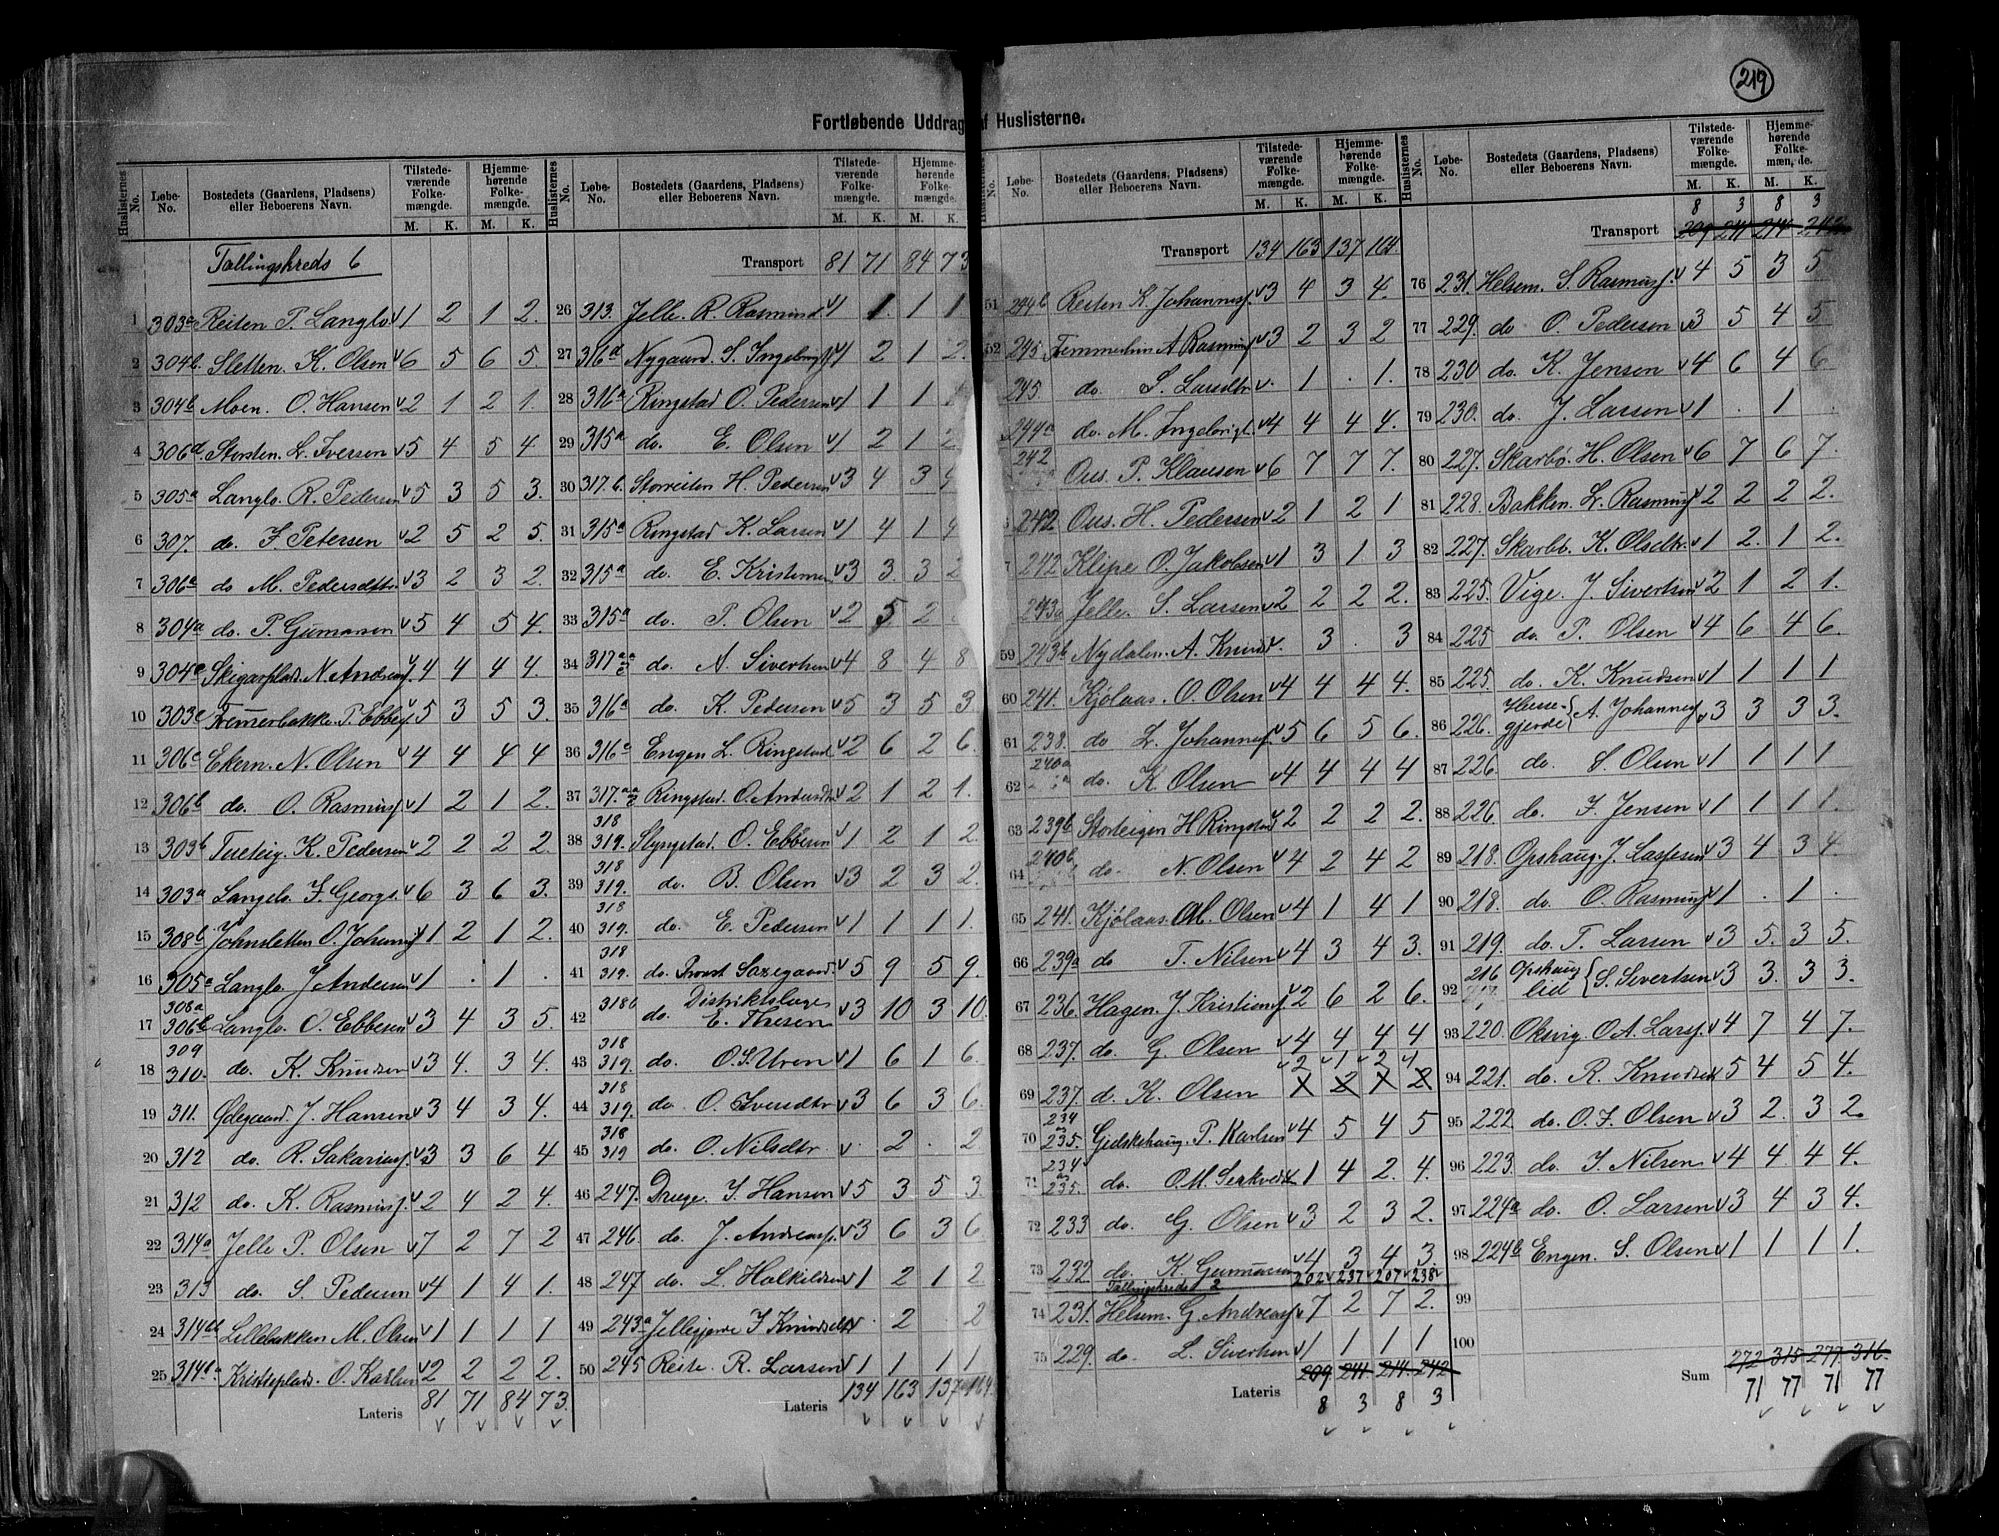 219
Fortløbende Uddrag af Huslisterne.
Huslisternes No. Løbe-No. Bostedets (Gaardens, Pladsens) eller Beboerens Navn. Tilstede-værende Folke-mængde. M. K. Hjemme-hørende Folke-mængde. M. K.
Tællingskreds 6
1 303a Reiten P. Langlo v1 2 1 2.
2 304b. Sletten. K. Olsen v6 5 6 5.
3 304b Moen. O. Hansen v2 1 2 1.
4 306d Storsten. L. Iversen v5 4 5 4
5 305a Langlo. R. Pedersen v5 3 5 3.
6 307. do. J. Petersen v2 5 2 5.
7 306a do M. Pedersdtr. v3 2 3 2.
8 304a do. P. Gumansen v5 4 5 4.
9 304c Skigarplads. N. Andreasf. v4 4 4 4.
10 303c Fremerbakke. P. Ebbes v5 3 5 3.
11 306c Ekern. N. Olsen v4 4 4 4
12 306b do. O. Rasmusf. v1 2 1 2.
13 303b Tueteig. K. Pedersen v2 2 2 2.
14 303a Langelo. J. Georgs. v6 3 6 3.
15 308b Johnsletten O. Johannes v1 2 1 2.
16 305a Langlo. J. Andersen v1 . 1 .
17 308a 306b Langlo. O. Ebbesen v3 4 3 5.
18 309 310. do. K. Knudsen v3 4. 3 4.
19 311. Ødegaard. J. Hansen v3 4 3 4.
20 312 do. R. Sakariasf. v3 3 6 4
21 312 do. K. Rasmusf. v2 4 2 4.
22 314a Jelle P. Olsen v7 2 7 2
23 313 do. S. Pedersen v4 1 4 1.
24 314bb Lillebakken M. Olsen v1 1 1 1
25 314ba Kristieplads. O. Karlsen v2 2 2 2.
Lateris 81 71 84 73.
Huslisternes No. Løbe-No. Bostedets (Gaardens, Pladsens) eller Beboerens Navn. Tilstede-værende Folke-mængde. M. K. Hjemme-hørende Folke-mængde. M. K.
Transport 81 71 84 73
26 313. Jelle. R. Rasmusd. v1 1. 1 1
27 316d Nygaard. S. Ingebrigtf v1 2 1 2.
28 316a Ringstad O. Pedersen v1 1 1
29 315a do. E. Olsen v1 2 1 2
30 317b. Storreiten H. Pedersen v3 4 3 4
31 315a Ringstad K. Larsen v1 4 1 4
32 315a do. E. Kristensen v3 3. 3 2
33 315a do. P. Olsen v2 5 2
34 317aa c do. A. Sivertsen v4 8 4 8
35 316a do. K. Pedersen v5 3 5 3.
36 316c Engen L. Ringstad v2 6 2 6.
37 317.aa Ringstad. O. Andersdtr v2 1 2 1.
38 318 319. Slyngstad. O. Ebbesen v1 2 1 2.
39 318 319. do. B. Olsen v3 2 3 2.
40 318 319. do. E. Pedersen v1 1 1 1.
41 318 319. do. Provst Saxegaard. v5 9 5 9.
42 318b do. Distriktslæge E. Thesen v3 10 3 10.
43 318 319. do. O. S. Uren v1 6 1 6
44 318 319. do O. Iversdtr v3 6 3 6.
45 318 319 do. O. Nilsdtr v. 2 . 2
46 247. Drage. I. Hansen v5 3 5 3.
47 246. do. J. Andreasf. v3 6 3 6
48 247 do. L. Halkildsen v1 2 1 2
49 243a Jellegjerde J. Knudsdtr v. 2 . 2
50 245 Reite. R. Larsen v1 1 1 1
Lateris 134 163 137 164.
Løbe-No. Bostedets (Gaardens, Pladsens) eller Beboerens Navn. Tilstede-værende Folke-mængde. M. K. Hjemme-hørende Folke-mængde. M. K.
Transport 134 163 137 164
51 244b Reiten K. Johannesf. v3 4 3 4.
52 245 Fremmerlien A. Rasmusf v3 2 3 2
245. do S. Larsdtr v. 1 . 1.
244a do. M. Ingebrigt. v4 4 4 4.
242 Ous. P. Klausen v6 7 7 7.
242 Ous. H. Pedersen v2 1 2 1
242 Klipe O. Jakobsen v1 3 1 3
243a Jelle. S. Larsen v2 2 2 2.
59 243b Nydalen. A. Knuds v. 3 . 3
60 241. Kjølaas. O. Olsen v4 4 4 4.
61 238. do L. Johannesf. v5 6 5 6
62 240a do. K. Olsen v4 4 4 4
63 239b Storteigen H. Ringstad v2 2 2 2.
64 240b. do. N. Olsen v4 2 4 2
65 241. Kjølaas. M. Olsen v4 1 4 1
66 239a do T. Nilsen v4 3 4 3.
67 236. Hagen. J. Kristiansf. v2 6 2 6.
68 237. do. G. Olsen v4 4 4 4
v2 v1 v2 v1
69 237. d. K. Olsen X 2 X 2
70 234 235. Gjedskehaug. P. Karlsen v4 5 4 5
71 234 235. do. O. M. v1 4 2 4.
72 233 do. G. Olsen v3 2 3 2.
73 232. do. K. Gumansen v4 3 4 3.
202v 237v 207v 238v
Tællingskreds 2
74 231. Helsem. G. Andreasf v7 2 7 2.
75 229. do. L. Sivertsen v1 1 1 1
Lateris 209 241. 214. 242
8 3 8 3
Huslisternes No. Løbe-No. Bostedets (Gaardens, Pladsens) eller Beboerens Navn. Tilstede-værende Folke-mængde. M. K. Hjemme-hørende Folke-mængde. M. K.
8 3 8 3
Transport 209 241 214 242
76 231. Helsem. S. Rasmusf. v4 5 3 5
77 229. do O. Pedersen v3 5 4 5
78 230 do. K. Jensen v4 6 4 6
79 230. do. J. Larsen v1 . 1 .
80 227. Skarbø. H. Olsen v6 7 6 7.
81 228. Bakken. L. Rasmusf v2 2 2 2.
82 227. Skarbø. K. Olsdtr. v1 2. 1 2.
83 225. Vige. J. Sivertsen v2 1 2 1.
84 225 do. P. Olsen v4 6 4 6.
85 225. do. K. Knudsen v1 1 1 1
86 226. Hessegjerde A. Johannesf v3 3 3 3.
87 226. do. S. Olsen v1 1 1 1
88 226. do. J. Jensen v1 1 1 1.
89 218. Opshaug. J. Laspesen v3 4 3 4.
90 218. do. O. Rasmusf v1 . 1 .
91 219. do. T. Larsen v3 5. 3 5.
92 216 217. Opshauglid S. Sivertsen v3 3. 3 3.
93 220. Oksvig. O. A. Larsf. v4 7 4 7.
94 221. do. R. Knudsen v5 4 5 4.
95 222. do. O. J. Olsen v3 2. 3 2.
96 223. do. J. Nilsen v4 4 4 4.
97 224a do. O. Larsen v3 4 3 4.
98 224b Engen. S. Olsen v1 1 1 1.
99
100
Sum 272 315 277 316.
71 77 71 77